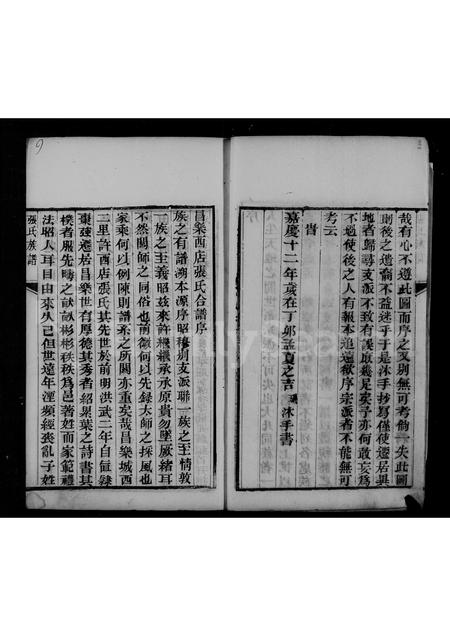 哉有心不遵此圖而序之又別無可考倘一失此圖
則後之遺裔不益迷乎于是沐手抄寫僅使遷居異
地者歸尋支派不致有誤敢
不過使後之人有報本追遠欲序宗派者不能無可
考云
嘉慶十二年歲在丁卯孟夏之吉 沐手書
昌樂西店張氏合譜序
族之有譜溯本源序昭穆別支派聯一族之至情敦
一族之至義昭茲來許繩繩承承原貴勿墜厥緒耳
不然閭師之同俗也前徵何以先錄太師之採風也
家乘何以例陳則譜系之所關亦重矣哉昌樂城西
三里許西店張氏其先世於前明洪武二年自
棗遷居昌樂世有厚德其秀者紹累葉之詩書其
樸者服先疇之畎畝彬彬秩秩為邑著姓而家範禮
法昭人耳目由來久已但世遠年湮頻經喪亂子姓
張氏族譜
9